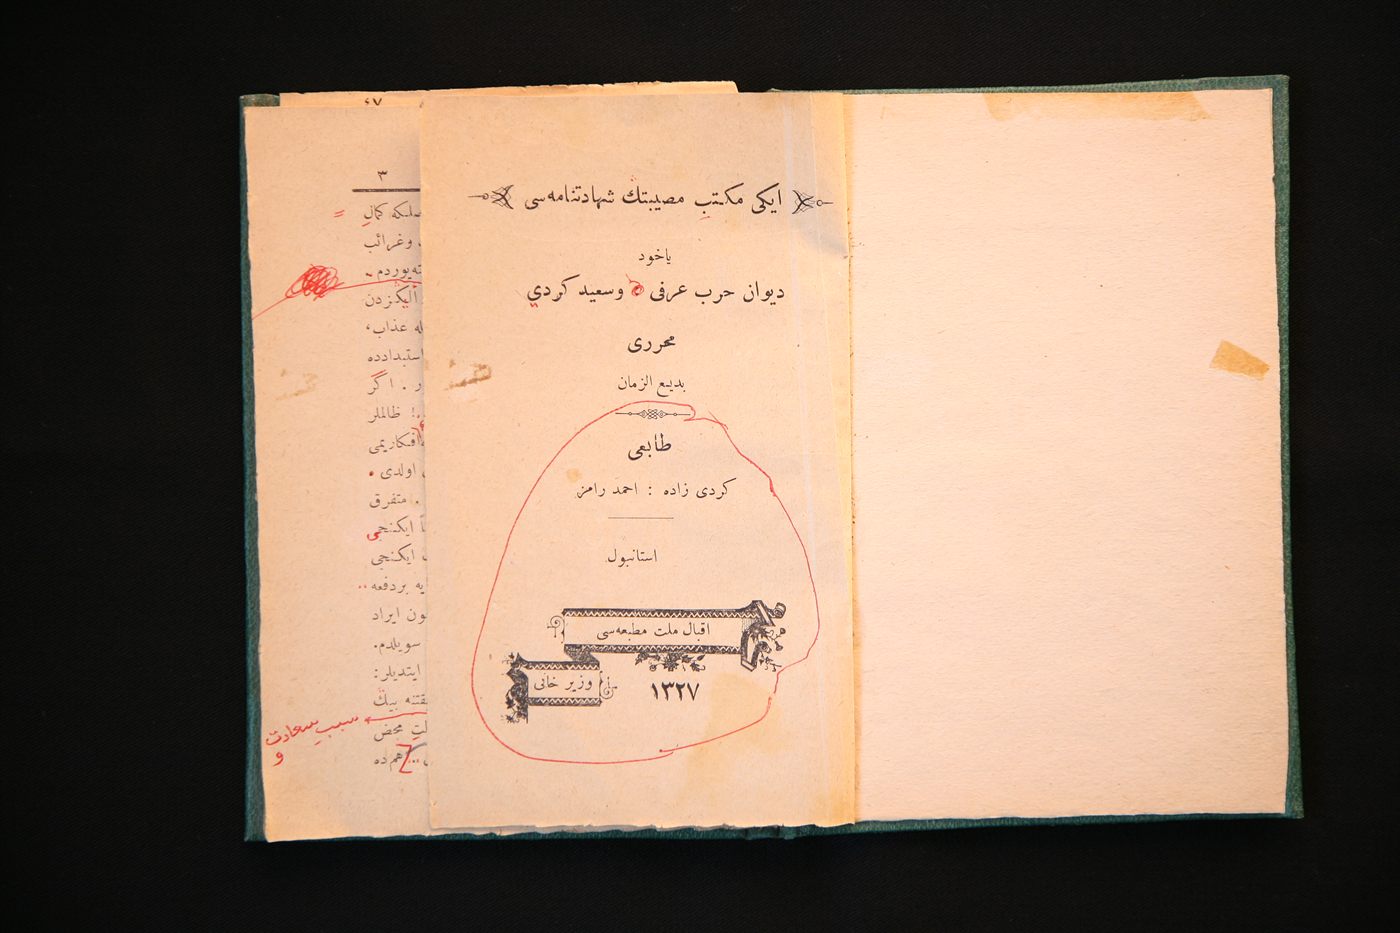 ایکی مکتب مصیبتك شهادتنامه‌سی
یاخود
دیوان حرب عرفی وسعید کردي
محرری
بدیع الزمان
طابعی
کردی زاده : احمد رامز
استانبول
اقبال ملت مطبعه‌سی
وزیر خانی
١٣٢٧
٦٧
٣
کمال
وغرائب
الیکزدن
عذاب،
استبدادده
ر . اگر
! ظالملر
افکاریمی
اولدی .
. متفرق
ایکنجی
ایکنجی
یه بردفعه
ایراد
سویلدم.
ایتدیلر:
بیك
محض
... هم‌ده
سبب سعادت
و